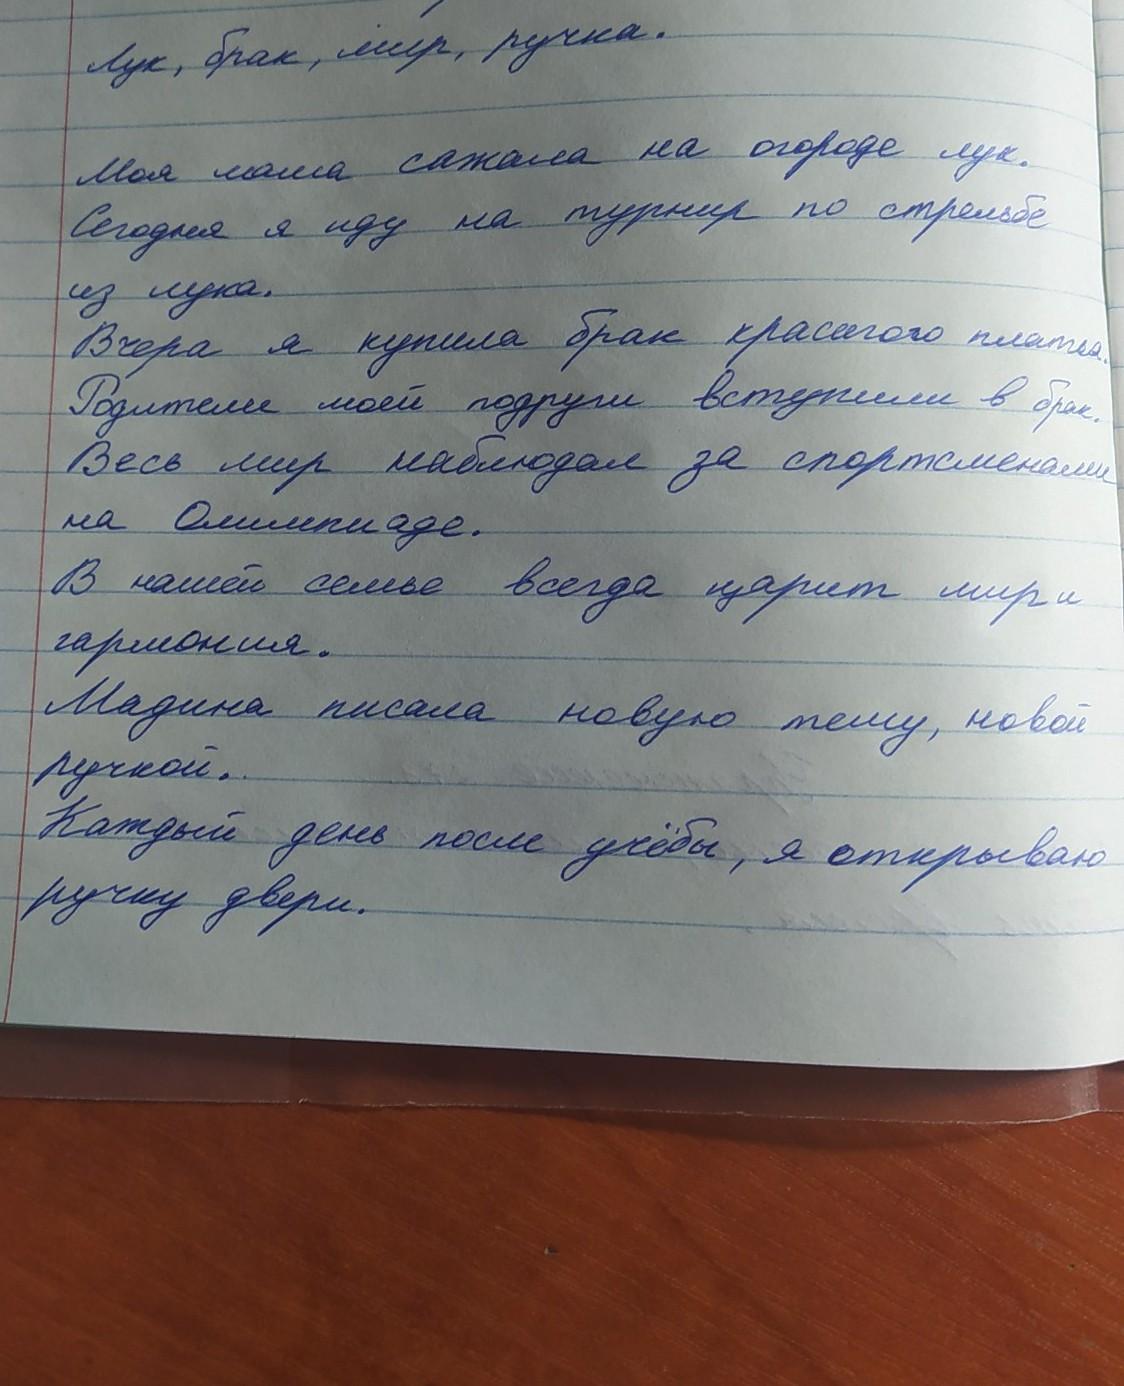 Лук, брак, мир, ручка.
Моя мама сажала на огороде лук.
Сегодня я иду на турнир по стрельбе
из лука.
Вчера я купила брак красивого платья.
Родители моей подруги вступили в брак.
Весь мир наблюдал за спортсменами
на Олимпиаде.
В нашей семье всегда царит мир и
гармония.
Мадина писала новую тему, новой
ручкой.
Каждый день после учёбы, я открываю
ручку двери.